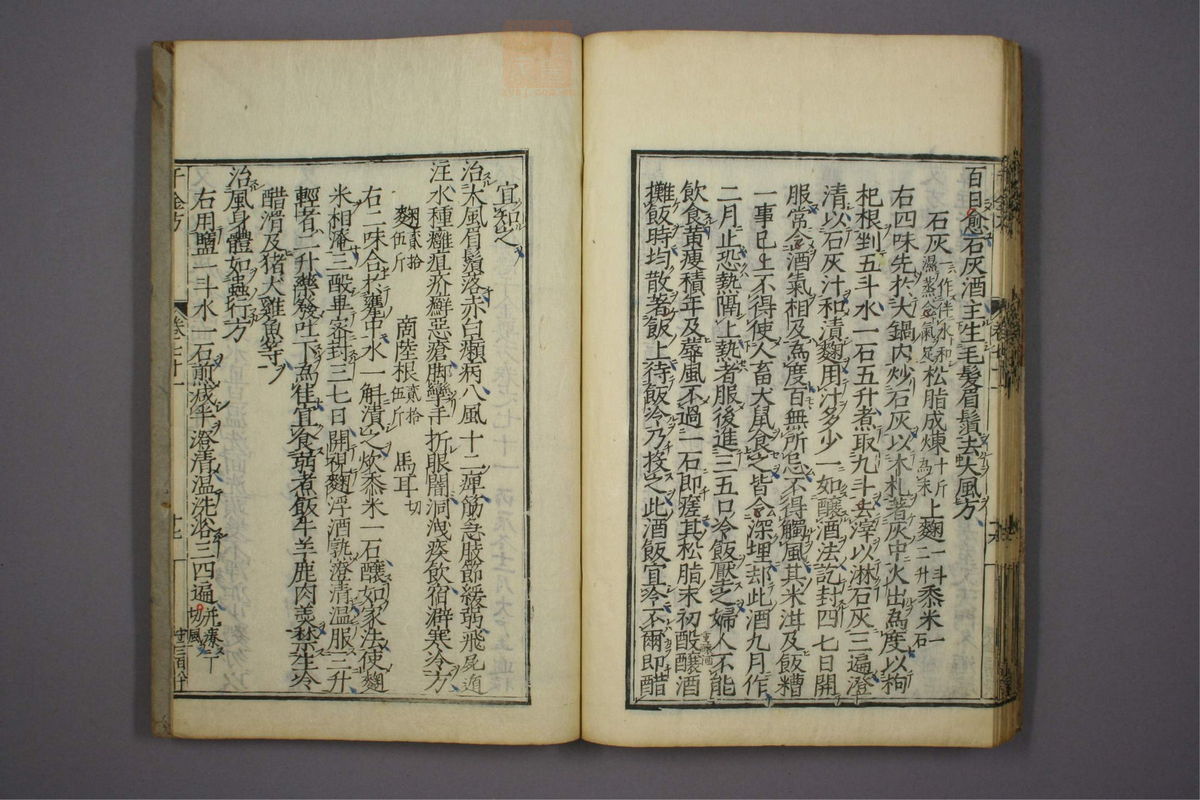 百日愈石灰酒主生毛髮眉鬚去大風方
石灰一作伴水和濕蒸令氣足松脂成煉十斤為末上麴一斗二升黍米一石
右四味先於大鐺内炒石灰以木札著灰中火出為度以枸
杞根剉五斗水一石五升煮取九斗去滓以淋石灰三遍澄
清以石灰汁和漬麴用汁多少一如醸酒法訖封四七日開
服常令酒氣相及為度百無所忌不得觸風其米泔及飯糟
一事已上不得使人畜犬鼠食之皆令深埋却此酒九月作
二月止恐熱隔上熱者服後進三五口冷飯壓之婦人不能
飲食黄瘦積年及蓐風不過一石即瘥其松脂末初酘釀酒
攤飯時均散著飯上待飯冷乃投之此酒飯宜冷不爾即醋
宜知之
治大風眉鬚落赤白癩病八風十二痺筋急肢節緩弱飛屍遁
注水腫癰疽疥癬惡瘡脚攣手折眼闇洞洩痰飲宿澼寒冷方
麴貳拾伍斤 商陸根貳拾伍斤 馬耳切
右二味合於甕中水一斛漬之炊黍米一石釀如家法使麴
米相淹三酘畢密封三七日開視麴浮酒熟澄清温服三升
輕者二升藥發吐下為佳宜食弱煮飯牛羊鹿肉羹禁生冷
醋滑及猪犬雞魚等
治風身體如蟲行方
右用鹽一斗水一石煎減半澄清温洗浴三四遍并療一切風
千金方
卷七十一